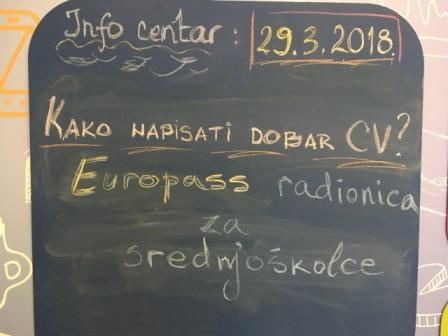 Info centar : 29.3.2018.
KAKO NAPISATI DOBAR CV?
Europass radionica
za
srednjoškolce